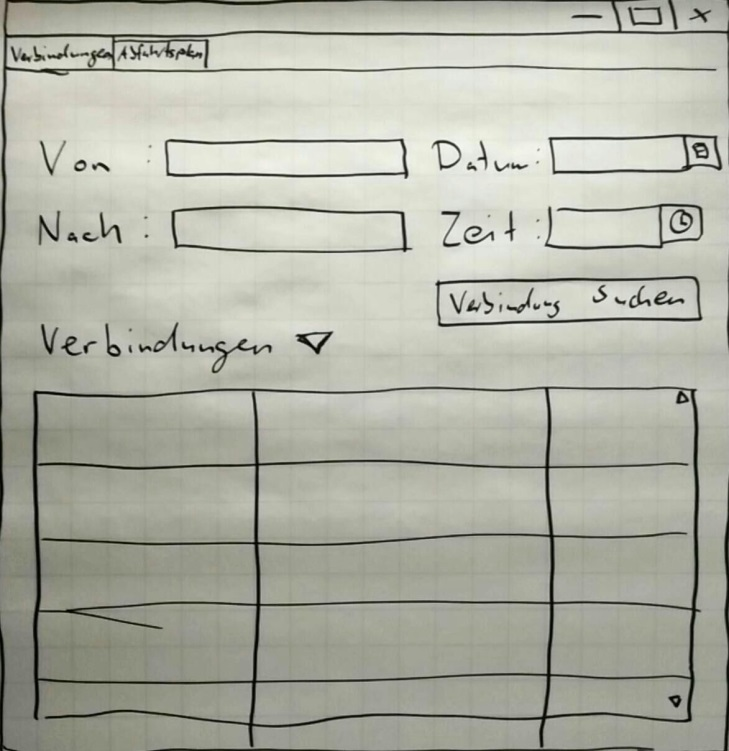 Verbindungen Abfahrtsplan
Von : Datum:
Nach : Zeit:
Verbindung Suchen
Verbindungen